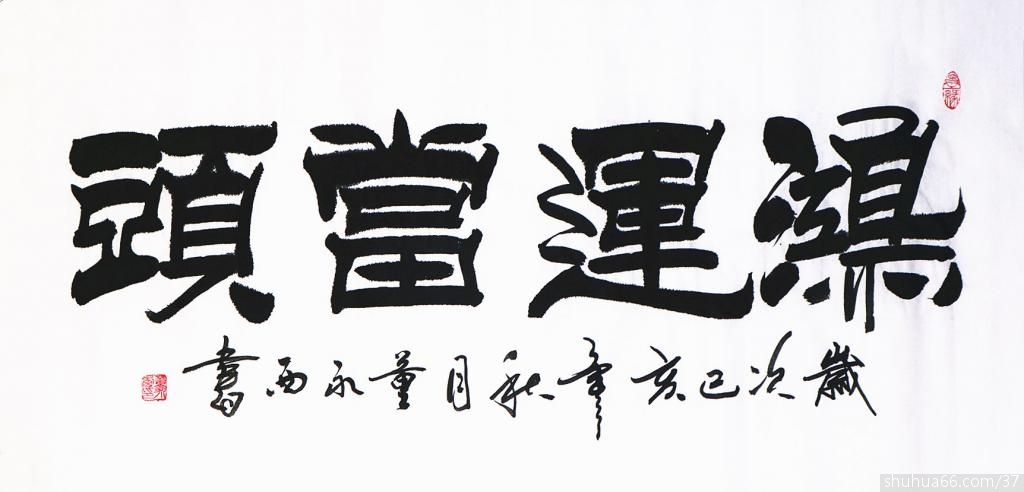 鴻運當頭
歲次己亥年秋月董永西書
shuhua66.com/37